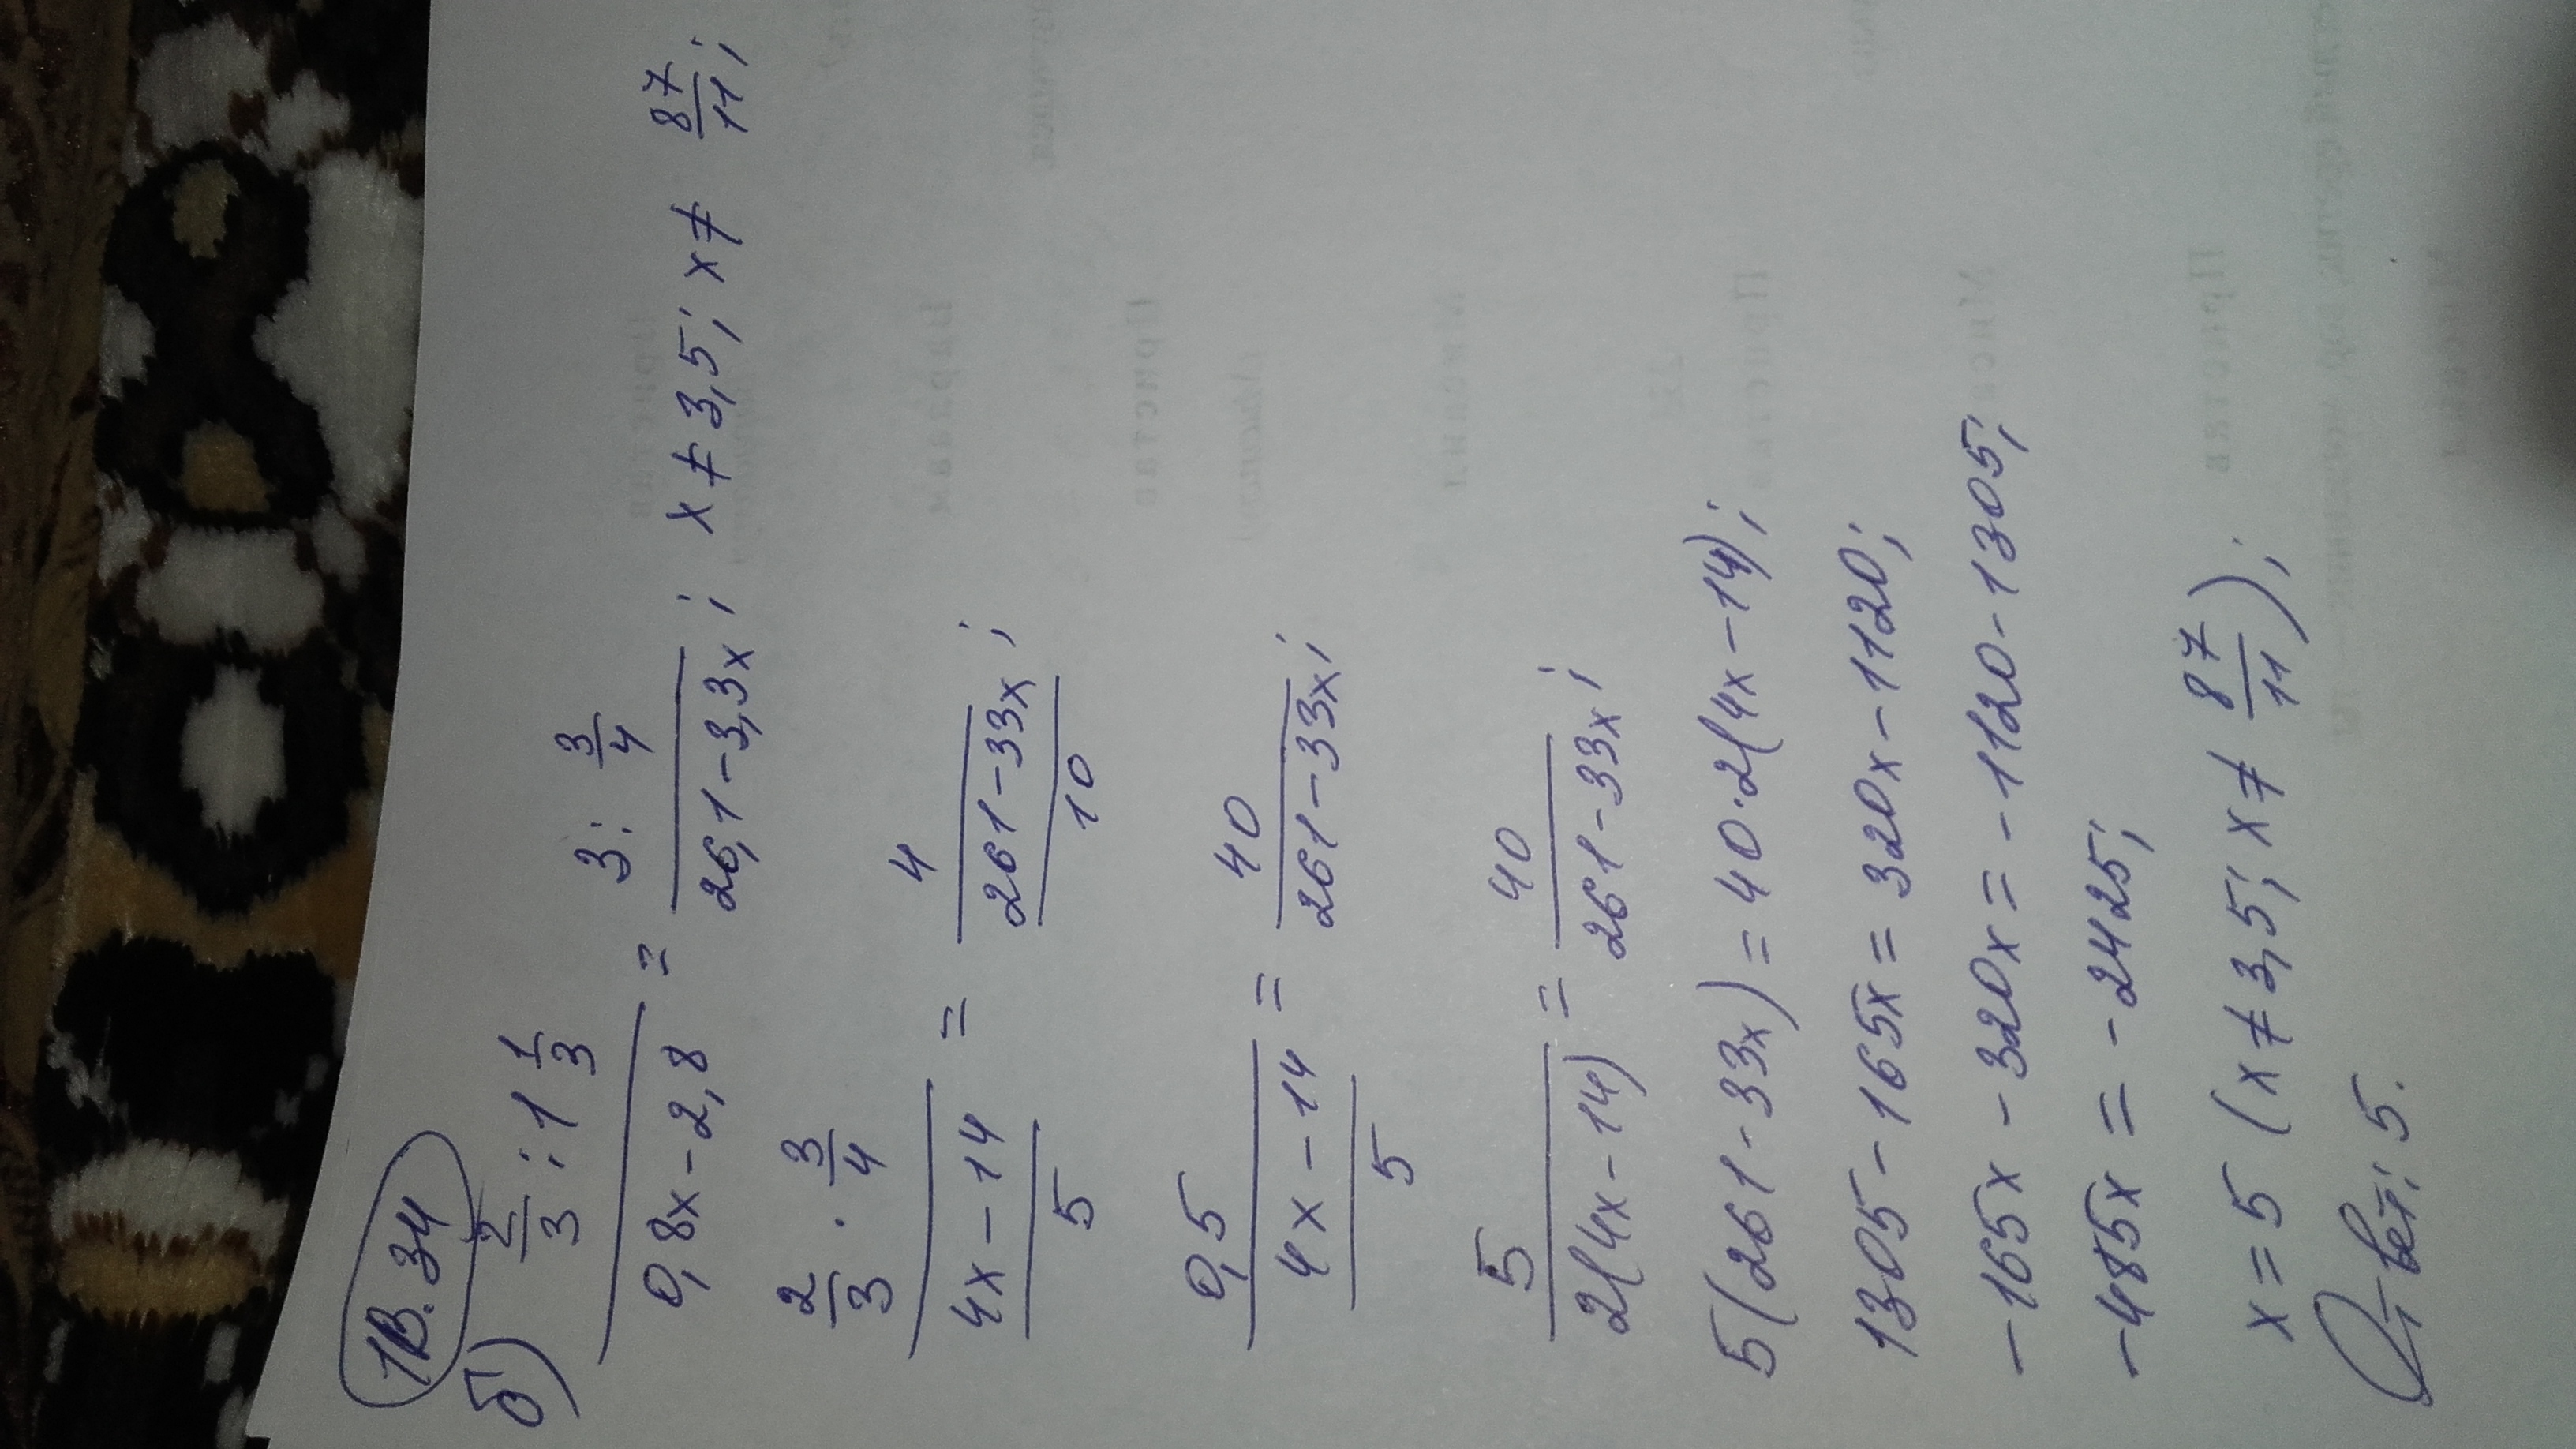 1В.34
б) 2/3 : 1 1/3 / (0,8x-2,8) = 3 : 3/4 / (26,1-3,3x) ; x ≠ 3,5; x ≠ 87/11 ;
2/3 · 3/4 / ((4x-14)/5) = 4 / ((261-33x)/10) ;
0,5 / ((4x-14)/5) = 40 / (261-33x) ;
5 / (2(4x-14)) = 40 / (261-33x) ;
5(261-33x) = 40·2(4x-14);
1305-165x = 320x-1120;
-165x-320x = -1120-1305;
-485x = -2425;
x = 5 (x ≠ 3,5; x ≠ 87/11);
Ответ: 5.